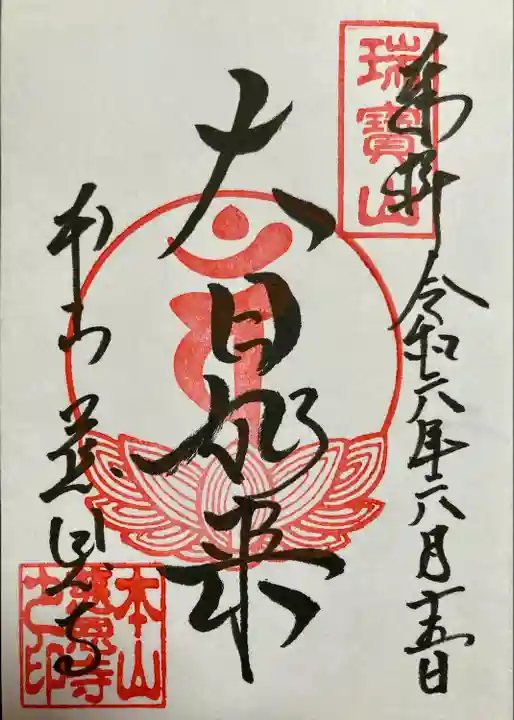 奉拝 令和六年六月十五日
瑞寶山
大日如来
本山 慈恩寺
本山
慈恩寺
之印